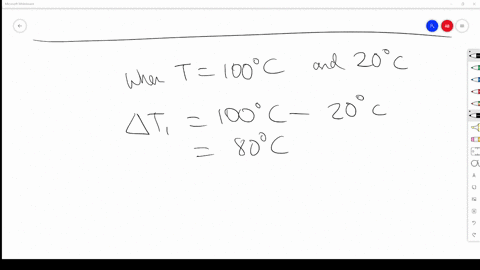 Microsoft Whiteboard
When T = 100°C and 20°C
ΔT₁ = 100°C – 20°C
= 80°C